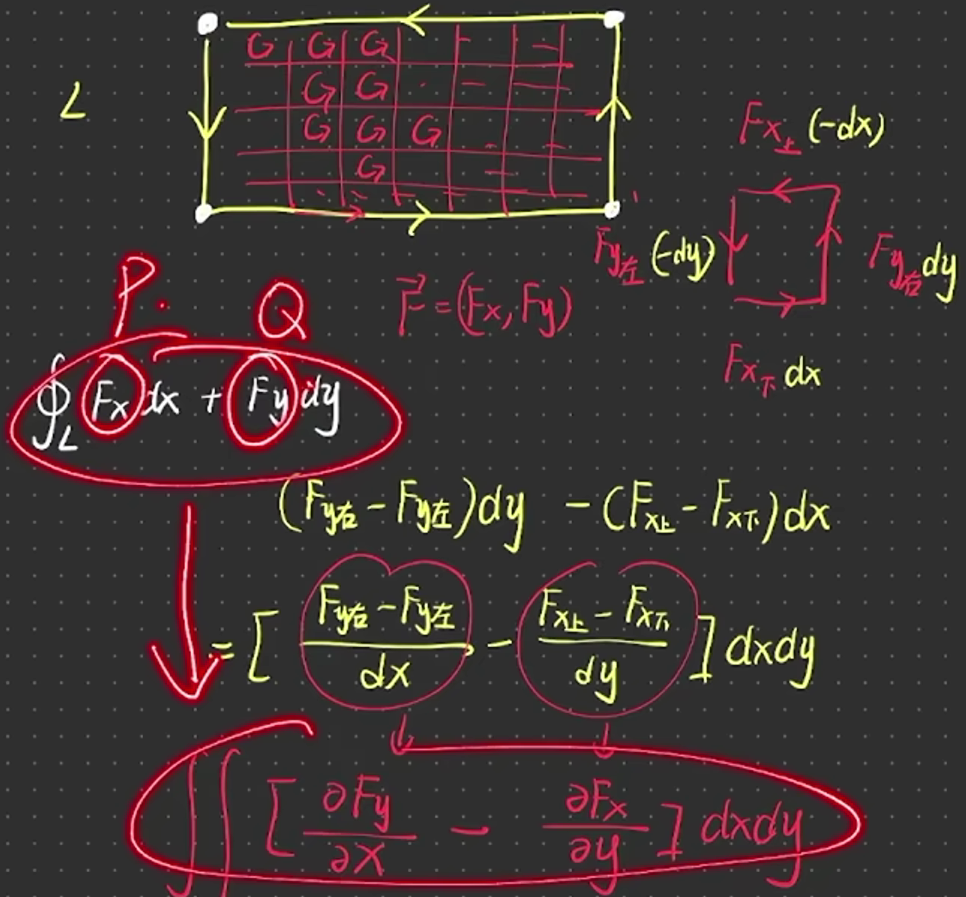 G G G
G G
G G G
G
L
Fx上 (-dx)
Fy左 (-dy)
Fy右 dy
Fx下 dx
P. Q
F⃗ = (Fx, Fy)
∮L Fx dx + Fy dy
(Fy右 - Fy左) dy - (Fx上 - Fx下) dx
= [ (Fy右 - Fy左)/dx - (Fx上 - Fx下)/dy ] dxdy
∬ [ ∂Fy/∂x - ∂Fx/∂y ] dxdy